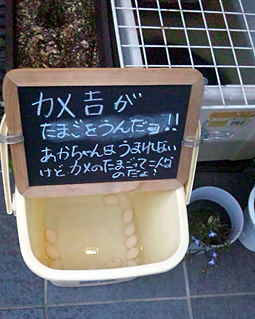 カメ吉が
たまごをうんだっ!!
あかちゃんはうまれない
けど カメのたまごってこんな
のだよ?